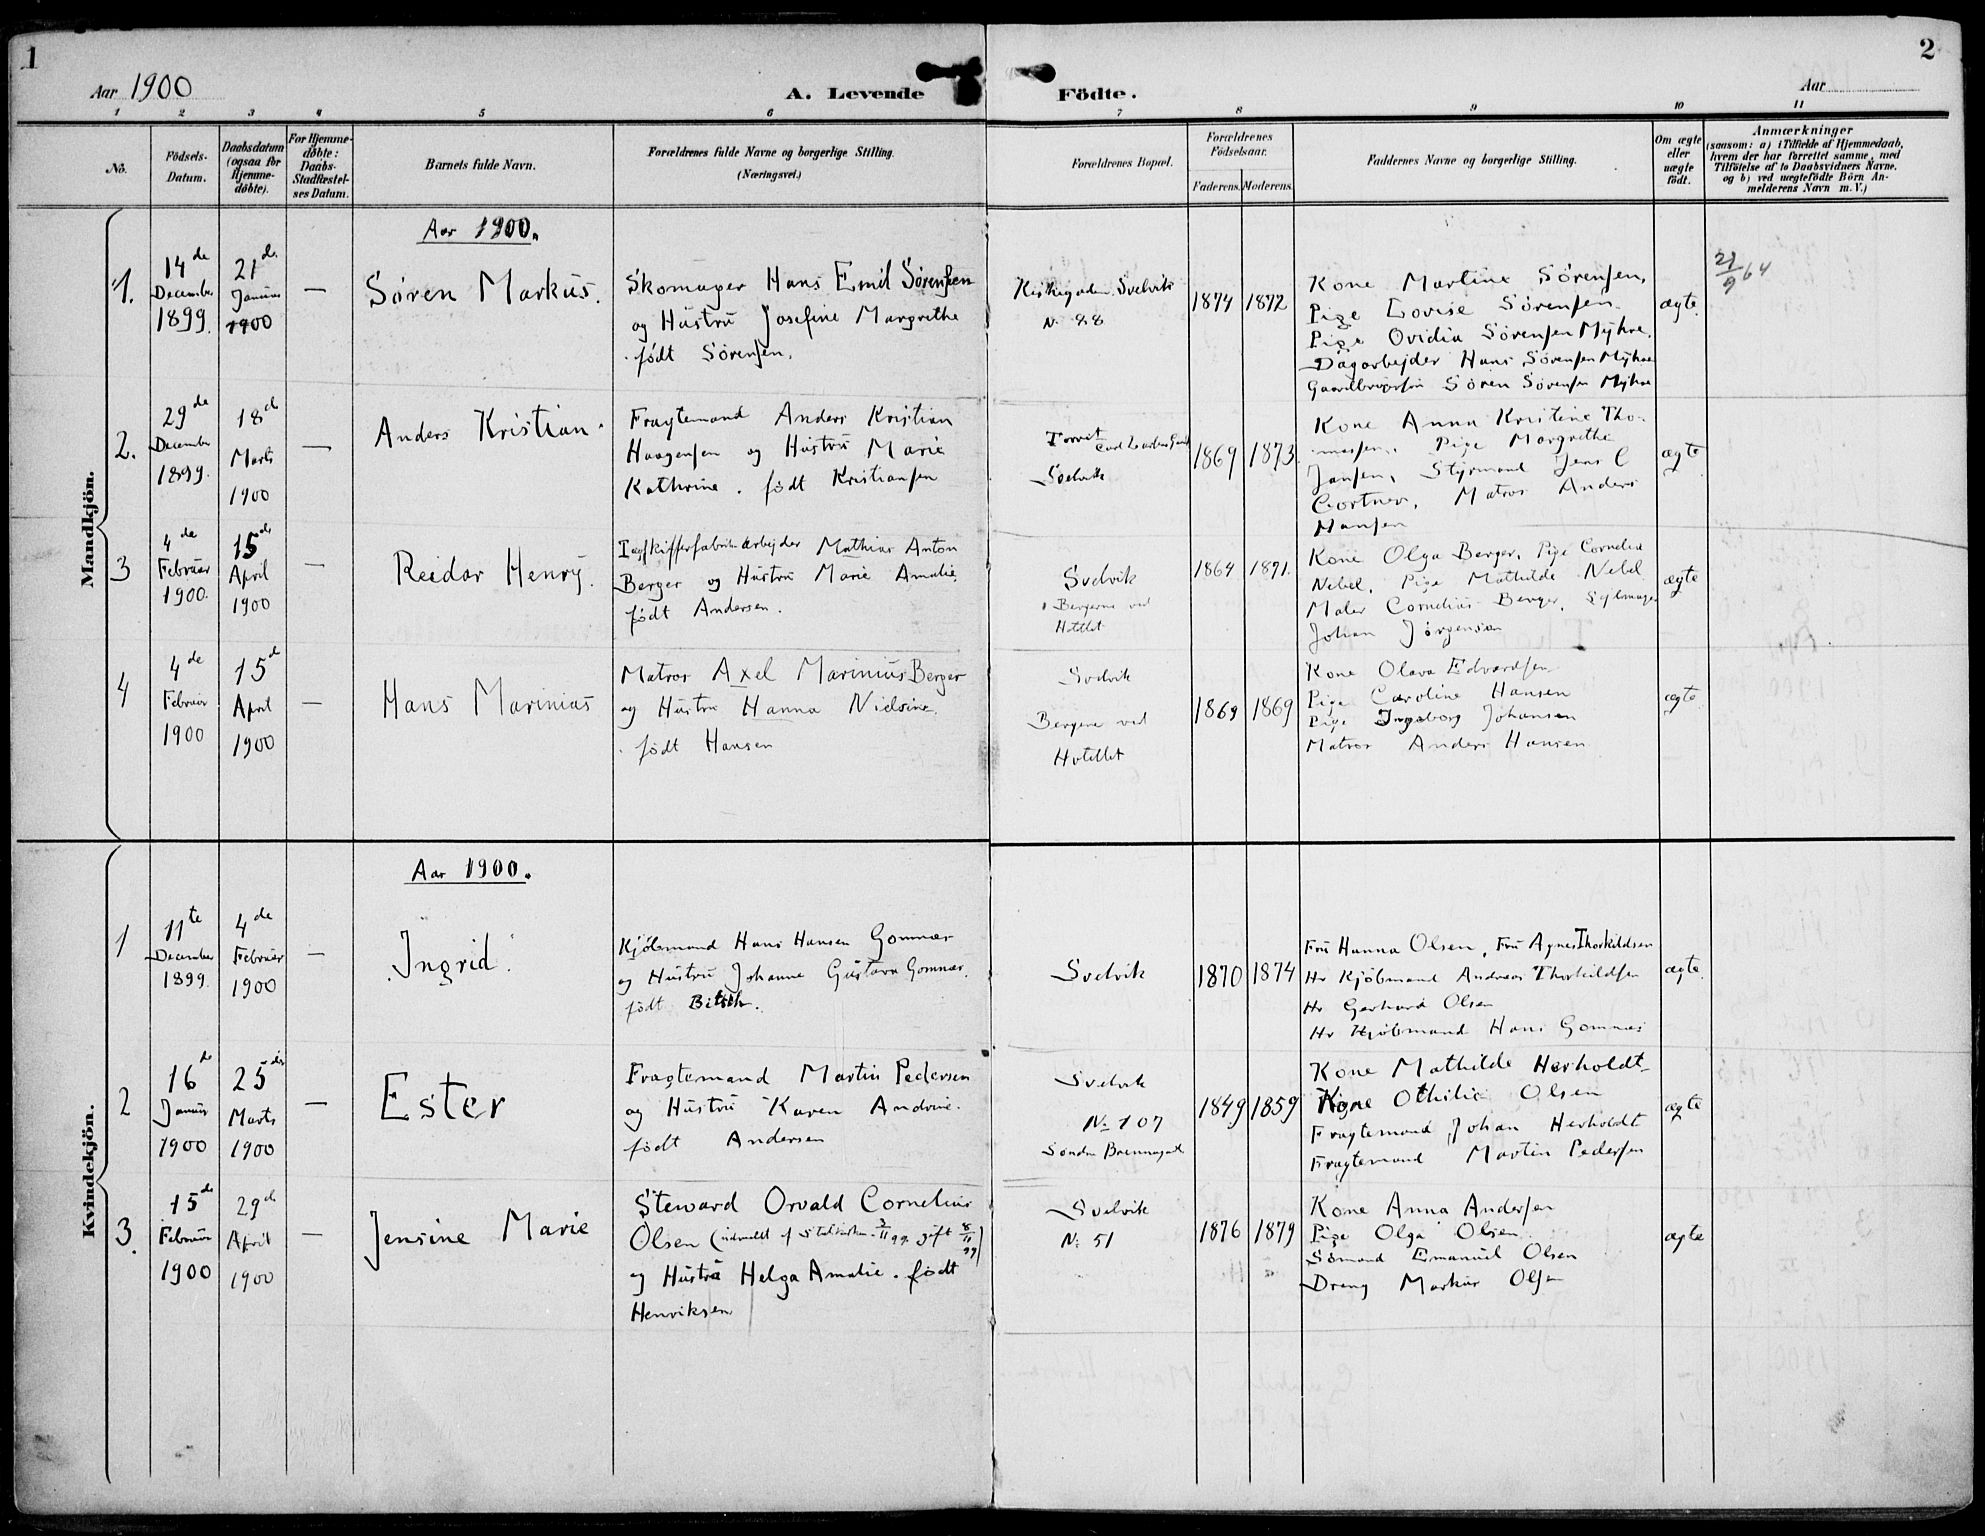 1
Aar 1900
A. Levende
Födte.
Aar
2
1 2 3 4 5 6 7 8 9 10 11
No.
Födsels-Datum.
Daabsdatum (ogsaa for Hjemme-döbte).
For Hjemme-döbte: Daabs-Stadfæstel-ses Datum.
Barnets fulde Navn.
Forældrenes fulde Navne og borgerlige Stilling.
(Næringsvei.)
Forældrenes Bopæl.
Forældrenes Födselsaar.
Faderens. Moderens.
Faddernes Navne og borgerlige Stilling.
Om ægte eller uægte födt.
Anmærkninger
(saasom: a) i Tilfælde af Hjemmedaab,
hvem der har forrettet samme, med
Tilföielse af to Daabsvidners Navne,
og b) ved uægtefödte Börn An-
melderens Navn m. V.)
Mandkjön.
Aar 1900.
1.
14de December 1899.
21de Januar 1900
—
Søren Markus.
Skomager Hans Emil Sörensen
og Hustru Josefine Margrethe
født Sørensen.
Kirkegaden Svelvik
N. 88
1874
1872
Kone Martine Sörensen,
Pige Lovise Sörensen
Pige Ovidia Sörensen Myhre.
Dagarbejder Hans Sörensen Myhre
Sören Sörensen Myhre
ægte.
21/9 64
2.
29de December 1899.
18de Marts 1900
—
Anders Kristian
Fragtemand Anders Kristian
Haagensen og Hustru Marie
Kathrine. født Kristiansen
Torvet
Svelvik
1869
1873
Kone Anna Kristine Tho-
massen, Pige Margrethe
Jansen, Styrmand Jens C
Gortner, Matros Anders
Hansen
ægte
3
4de Februar 1900.
15de April 1900
—
Reidar Henry.
Mathias Anton
Berger og Hustru Marie Amalie
født Andersen.
Svelvik
Bergerne ved
Hotellet
1864
1871.
Kone Olga Berger, Pige Cornelia
Nebel, Pige Mathilde Nebel
Maler Cornelius Berger, Sejlmager
Johan Jørgensen
ægte
4
4de Februar 1900
15de April 1900
—
Hans Marinius
Matros Axel Marinius Berger
og Hustru Hanna Nielsine
født Hansen
Svelvik
Bergerne ved
Hotellet
1869
1869
Kone Olava Edvardsen
Pige Caroline Hansen
Pige Ingeborg Johansen
Matros Anders Hansen
ægte
Kvindekjön.
Aar 1900.
1
11te December 1899
4de Februar 1900
—
Ingrid
Kjöbmand Hans Hansen Gomnæs
og Hustru Johanne Gustava Gomnæs.
født Bitsch.
Svelvik
1870
1874
Fru Hanna Olsen, Fru Agnes Thorkildsen
Hr Kjöbmand Andreas Thorkildsen
Hr Gerhard Olsen
Hr Kjöbmand Hans Gomnæs
ægte.
2
16de Januar 1900
25de Marts 1900
—
Ester
Fragtemand Martin Pedersen
og Hustru Karen Andrine.
født Andersen
Svelvik
No 107
1849
1859
Kone Mathilde Herholdt
Kone Othilie Olsen
Fragtemand Johan Herholdt
Fragtemand Martin Pedersen
ægte
3.
15de Februar 1900
29de April 1900
—
Jensine Marie
Steward Osvald Cornelius
Olsen (udmeldt af Statskirken 3/11 99 gift 8/11 99)
og Hustru Helga Amalie. født
Henriksen
Svelvik
N. 51
1876
1879
Kone Anna Andersen
Pige Olga Olsen
Sømand Emanuel Olsen
Dreng Markus Olsen
ægte